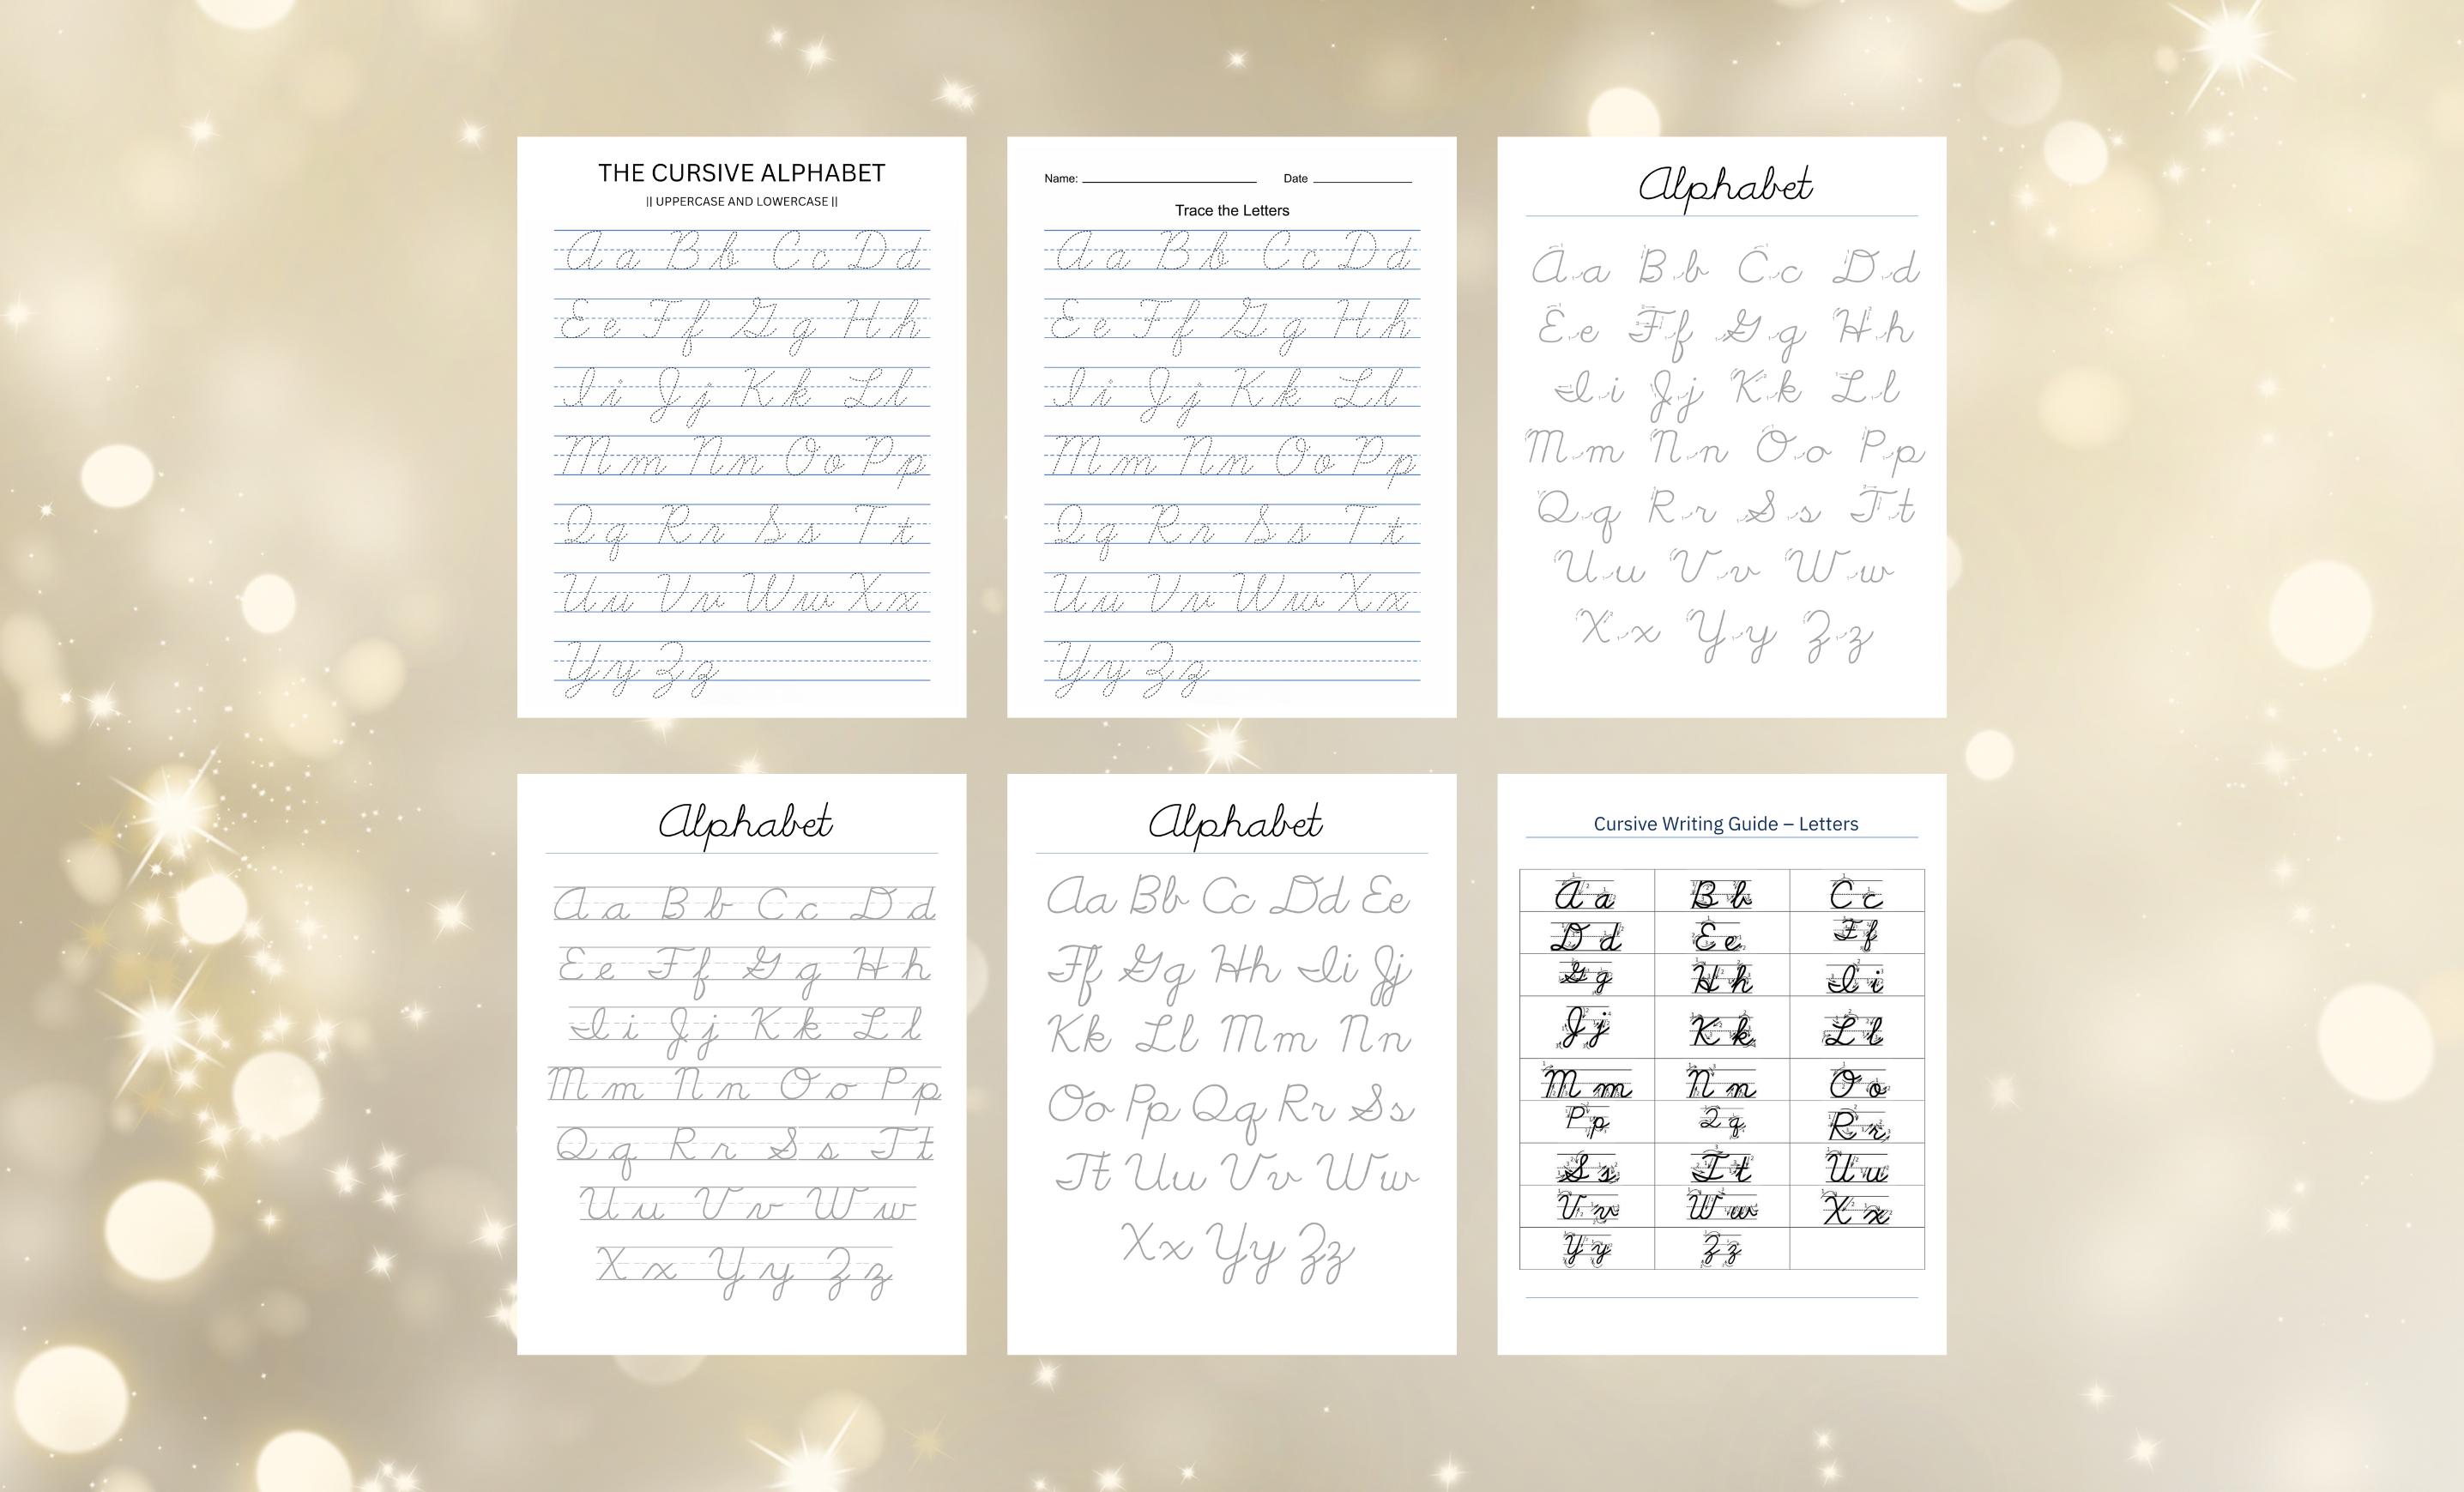 THE CURSIVE ALPHABET
|| UPPERCASE AND LOWERCASE ||
Aa Bb Cc Dd
Ee Ff Gg Hh
Ii Jj Kk Ll
Mm Nn Oo Pp
Qq Rr Ss Tt
Uu Vv Ww Xx
Yy Zz
Name: Date
Trace the Letters
Aa Bb Cc Dd
Ee Ff Gg Hh
Ii Jj Kk Ll
Mm Nn Oo Pp
Qq Rr Ss Tt
Uu Vv Ww Xx
Yy Zz
Alphabet
Aa Bb Cc Dd
Ee Ff Gg Hh
Ii Jj Kk Ll
Mm Nn Oo Pp
Qq Rr Ss Tt
Uu Vv Ww
Xx Yy Zz
Alphabet
Aa Bb Cc Dd
Ee Ff Gg Hh
Ii Jj Kk Ll
Mm Nn Oo Pp
Qq Rr Ss Tt
Uu Vv Ww
Xx Yy Zz
Alphabet
Aa Bb Cc Dd Ee
Ff Gg Hh Ii Jj
Kk Ll Mm Nn
Oo Pp Qq Rr Ss
Tt Uu Vv Ww
Xx Yy Zz
Cursive Writing Guide – Letters
A a B b C c
D d E e F f
G g H h I i
J j K k L l
M m N n O o
P p Q q R r
S s T t U u
V v W w X x
Y y Z z